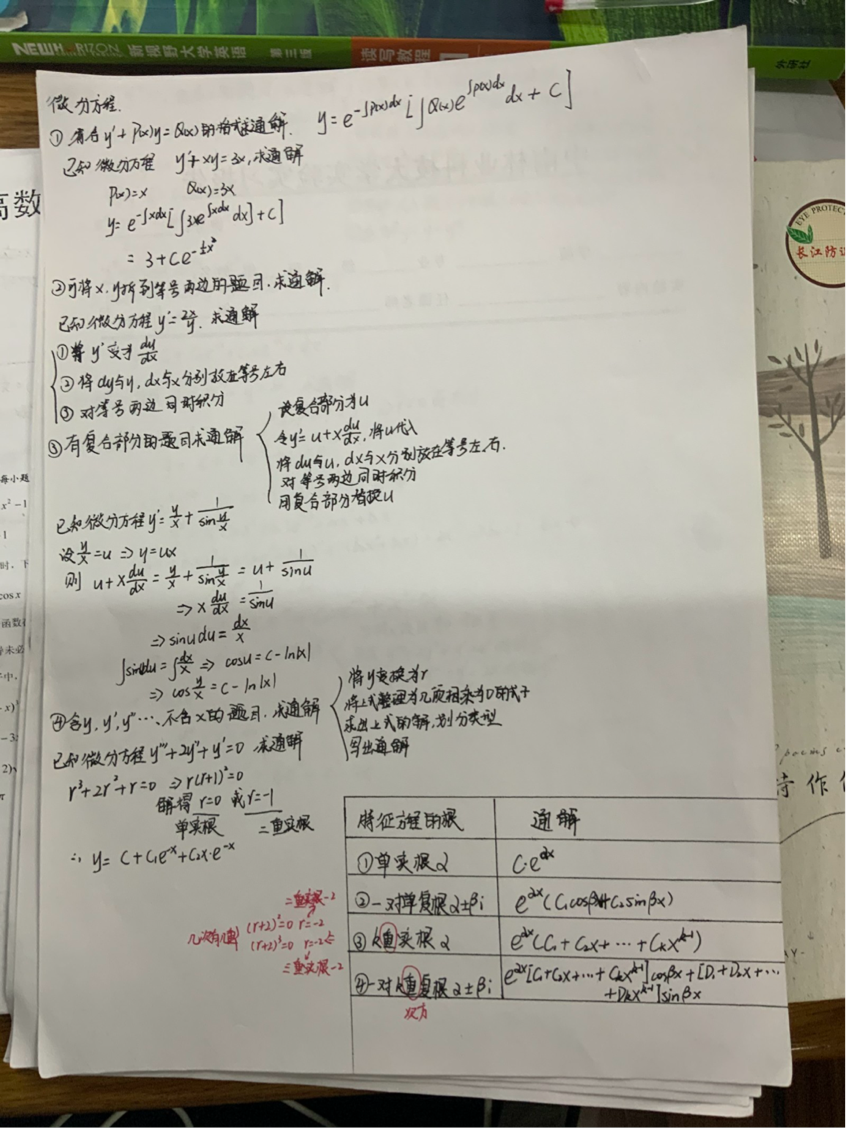 新视野大学英语 第三版
读写教程
微分方程.
①符合y'+P(x)y=Q(x)的格式求通解. y=e^{-∫P(x)dx}[∫Q(x)e^{∫P(x)dx}dx+C]
已知微分方程 y'+xy=3x,求通解
P(x)=x Q(x)=3x
y=e^{-∫xdx}[∫3xe^{∫xdx}dx]+C]
=3+Ce^{-½x²}
②可将x.y拆到等号两边的题目.求通解.
已知微分方程y'=2x/y.求通解
①将y'变为dy/dx
②将dy与y,dx与x分别放在等号左右
③对等号两边同时积分
③有复合部分的题目求通解
设复合部分为u
令y'=u+x du/dx,将u代入
将du与u,dx与x分别放在等号左.右.
对等号两边同时积分
用复合部分替换u
已知微分方程y'=y/x+1/sin y/x
设y/x=u⇒y=ux
则 u+x du/dx=y/x+1/sin y/x=u+1/sinu
⇒x du/dx=1/sinu
⇒sinudu=dx/x
∫sinudu=∫dx/x⇒cosu=C-ln|x|
⇒cos y/x=C-ln|x|
④含y,y',y''…,不含x的题目.求通解
将y变换为r
将上式整理为几项相乘为0的式子
求出上式的解,划分类型
写出通解
已知微分方程y'''+2y''+y'=0 求通解
r³+2r²+r=0 ⇒r(r+1)²=0
解得r=0或r=-1
单实根 二重实根
∴y=C+C₁e^{-x}+C₂x·e^{-x}
二重实根-2
几次有几重 (r+2)²=0 r=-2
(r+2)³=0 r=-2
三重实根-2
特征方程的根 通解
①单实根α C·e^{αx}
②一对单复根α±βi e^{αx}(C₁cosβx+C₂sinβx)
③k重实根α e^{αx}(C₁+C₂x+…+Cₖx^{k-1})
④一对k重复根α±βi e^{αx}[C₁+C₂x+…+Cₖx^{k-1}]cosβx+[D₁+D₂x+…
+Dₖx^{k-1}]sinβx
次方
高数
每小题
x²-1
1
时,下
cosx
函数
EYE PROTEC
长江防
诗作